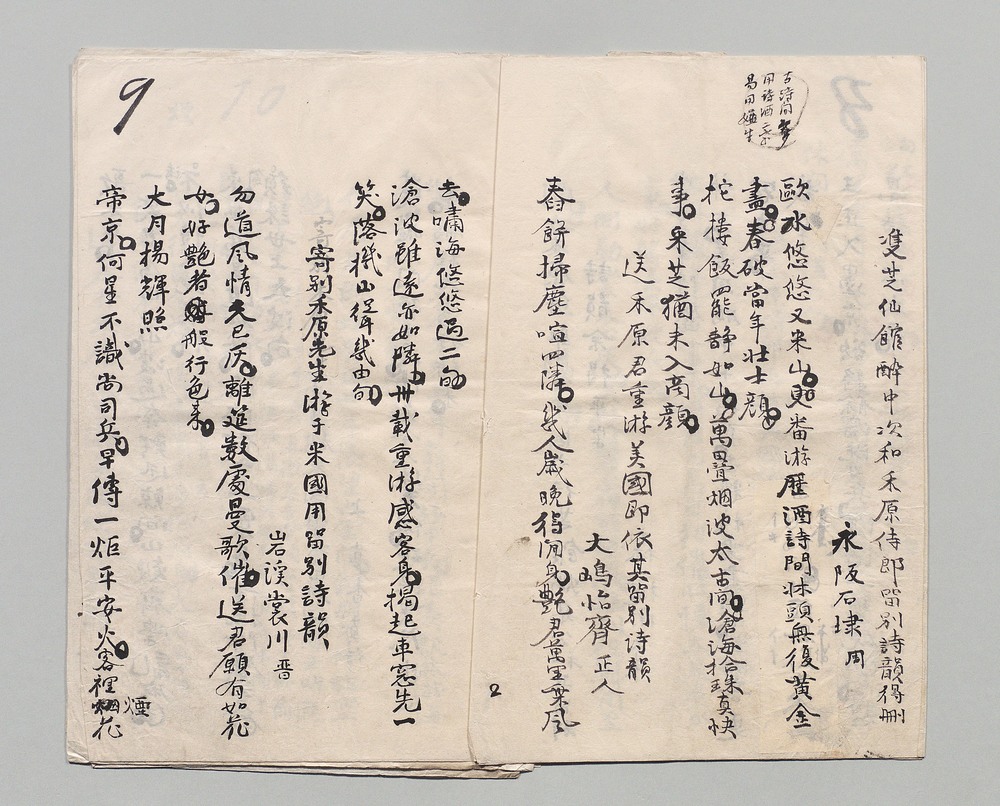 雙芝仙館醉中次和禾原侍郎留別詩韻得刪
永阪石埭 周
歐水悠悠又米山更番游歷酒詩間牀頭無復黃金
盡春破當年壯士顏
柁樓飯罷靜如山萬疊烟波太古間滄海拾珠真快
事采芝猶未入商顏
送禾原君重游美國即依其留別詩韻
大嶋怡齋 正人
舂餅掃塵喧四隣幾人歲晚得閒身艷君萬里乘風
2
9
去嘯海悠悠過二旬
滄波雖遠亦如隣卅載重游感客身揭起車窓先一
笑落機山聳幾由旬
寄別禾原先生游于米國用留別詩韻
岩溪裳川 晋
勿道風情久已灰離筵數處曼歌催送君願有如花
女好艷者般行色來
大月揚輝照
帝京何星不識尚司兵早傳一炬平安火客裡烟花
煙